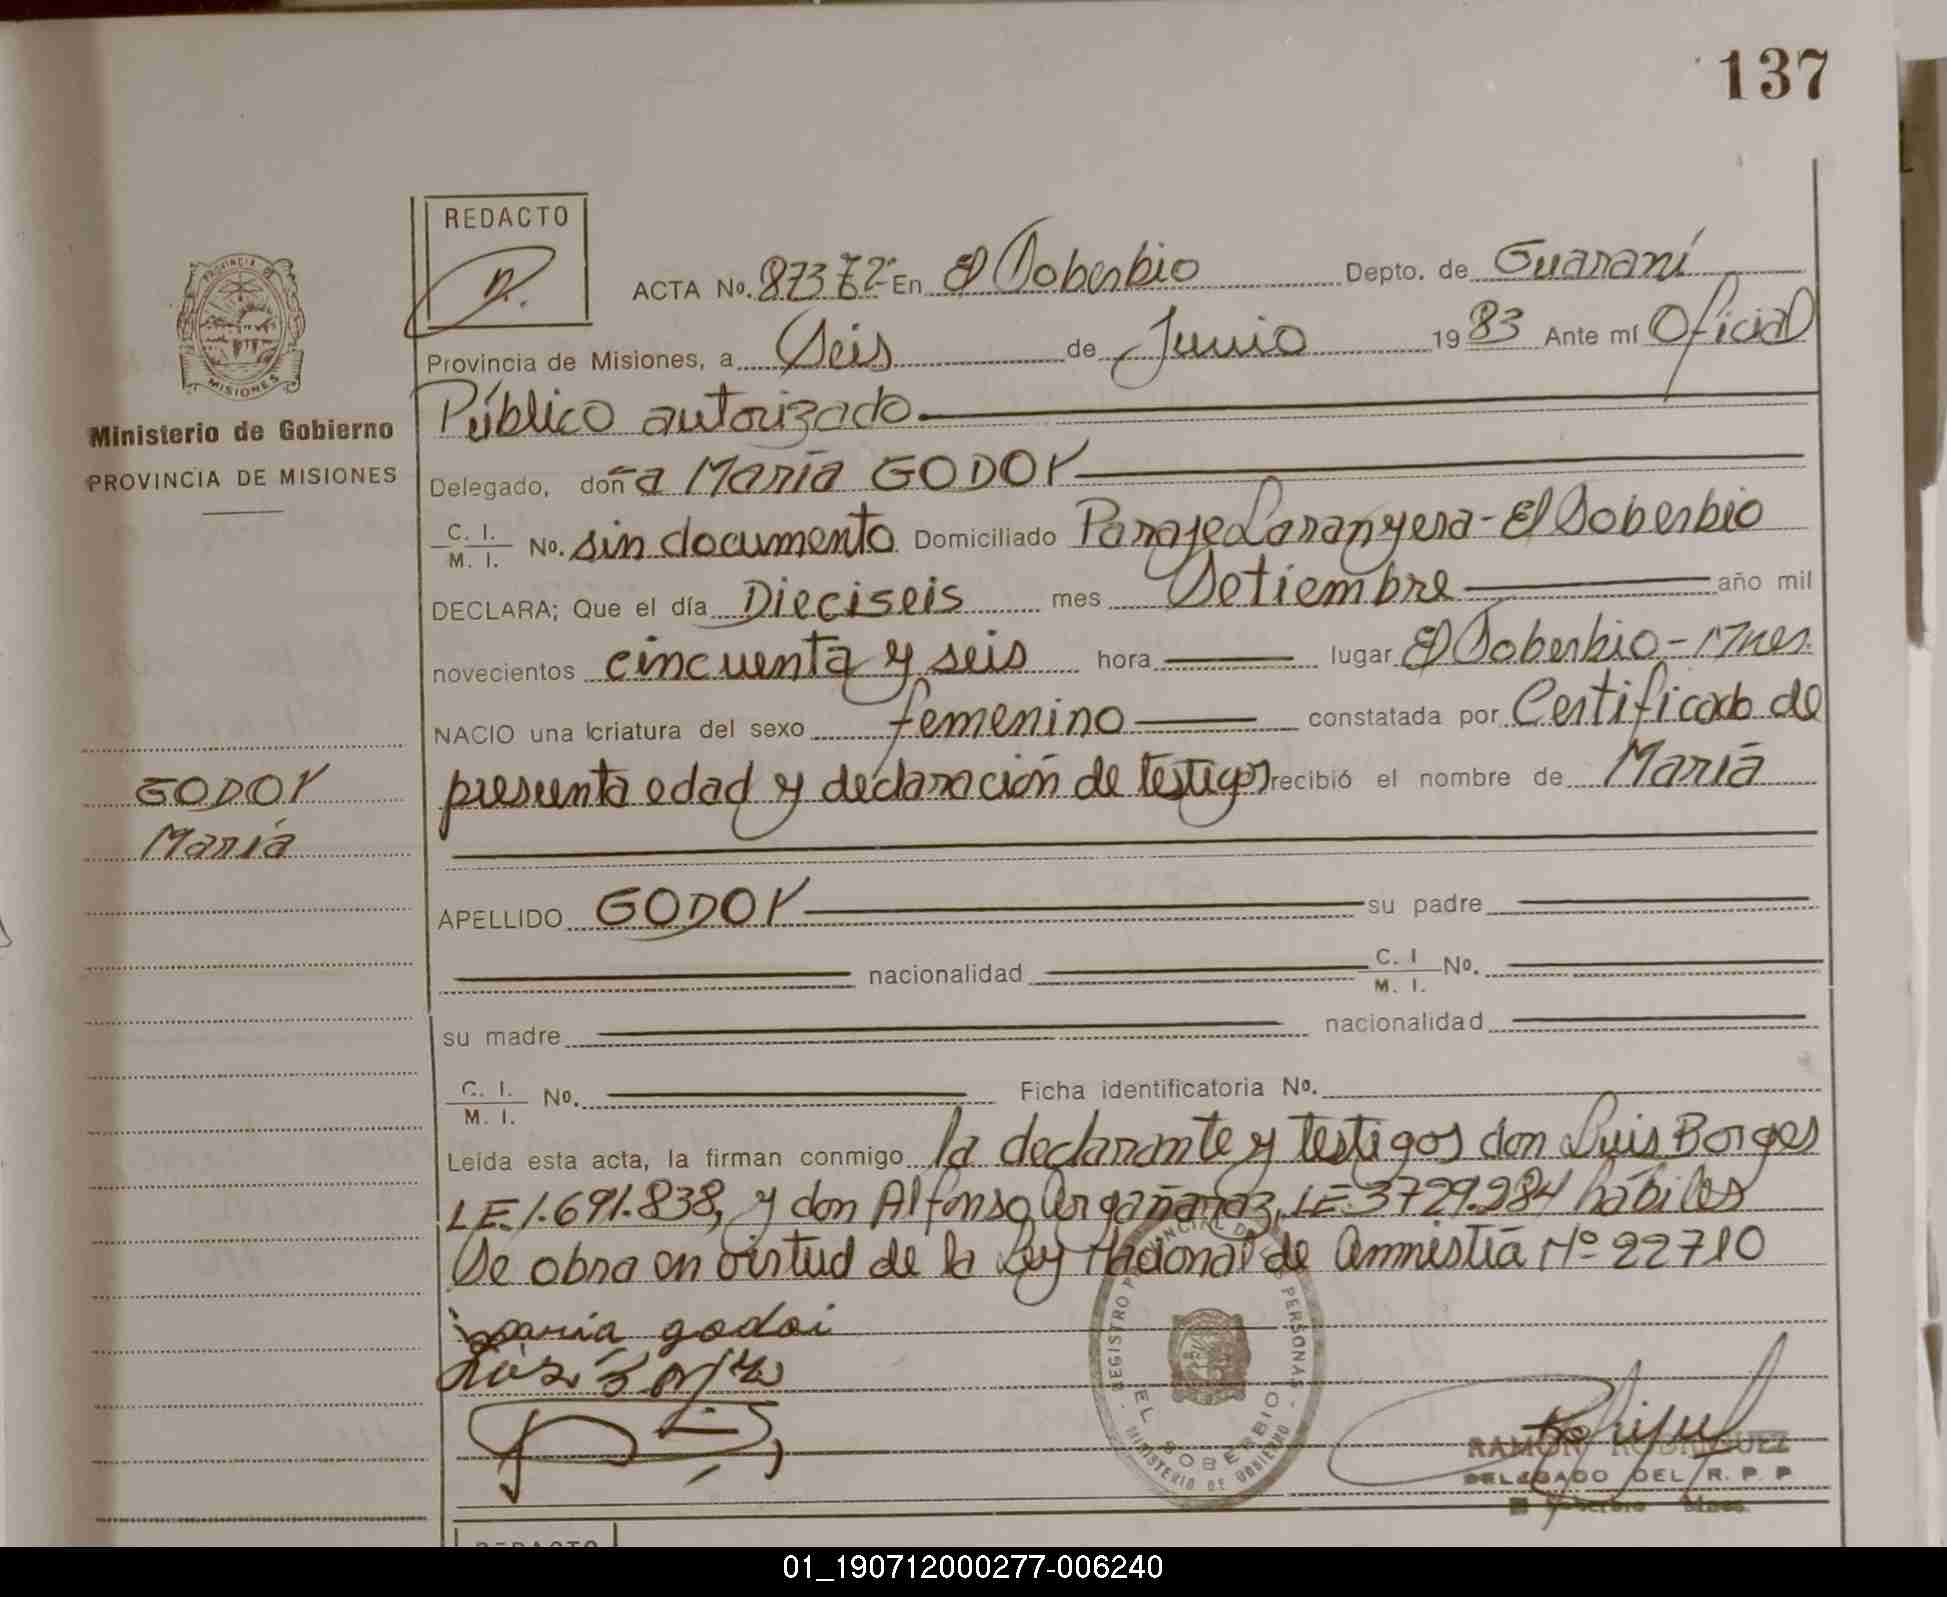 137
REDACTO
PROVINCIA DE
MISIONES
Ministerio de Gobierno
PROVINCIA DE MISIONES
ACTA No. En El Soberbio Depto. de Guaraní
Provincia de Misiones, a Seis de Junio 1983 Ante mí Oficial
Público autorizado
Delegado, doña María GODOY
C. I. M. I. No. sin documento Domiciliado Paraje Laranyera - El Soberbio
DECLARA; Que el día Dieciseis mes Setiembre año mil
novecientos cincuenta y seis hora lugar El Soberbio - Mnes.
NACIO una criatura del sexo femenino constatada por Certificado de
presunta edad y declaración de testigos recibió el nombre de María
GODOY
María
APELLIDO GODOY su padre
nacionalidad C. I. M. I. No.
su madre nacionalidad
C. I. M. I. No. Ficha identificatoria No.
Leída esta acta, la firman conmigo la declarante y testigos don Luis Borges
LE.1.691.838, y don Alfonso LE.3729.284 hábiles
Se obra en virtud de la Ley Nacional de Amnistía Nº 22710
maria godoi
REGISTRO PROVINCIAL DE PERSONAS
EL SOBERBIO
MINISTERIO DE GOBIERNO
RAMON RODRIGUEZ
DELEGADO DEL R. P. P
El Soberbio Mnes.
REDACTO
01_190712000277-006240